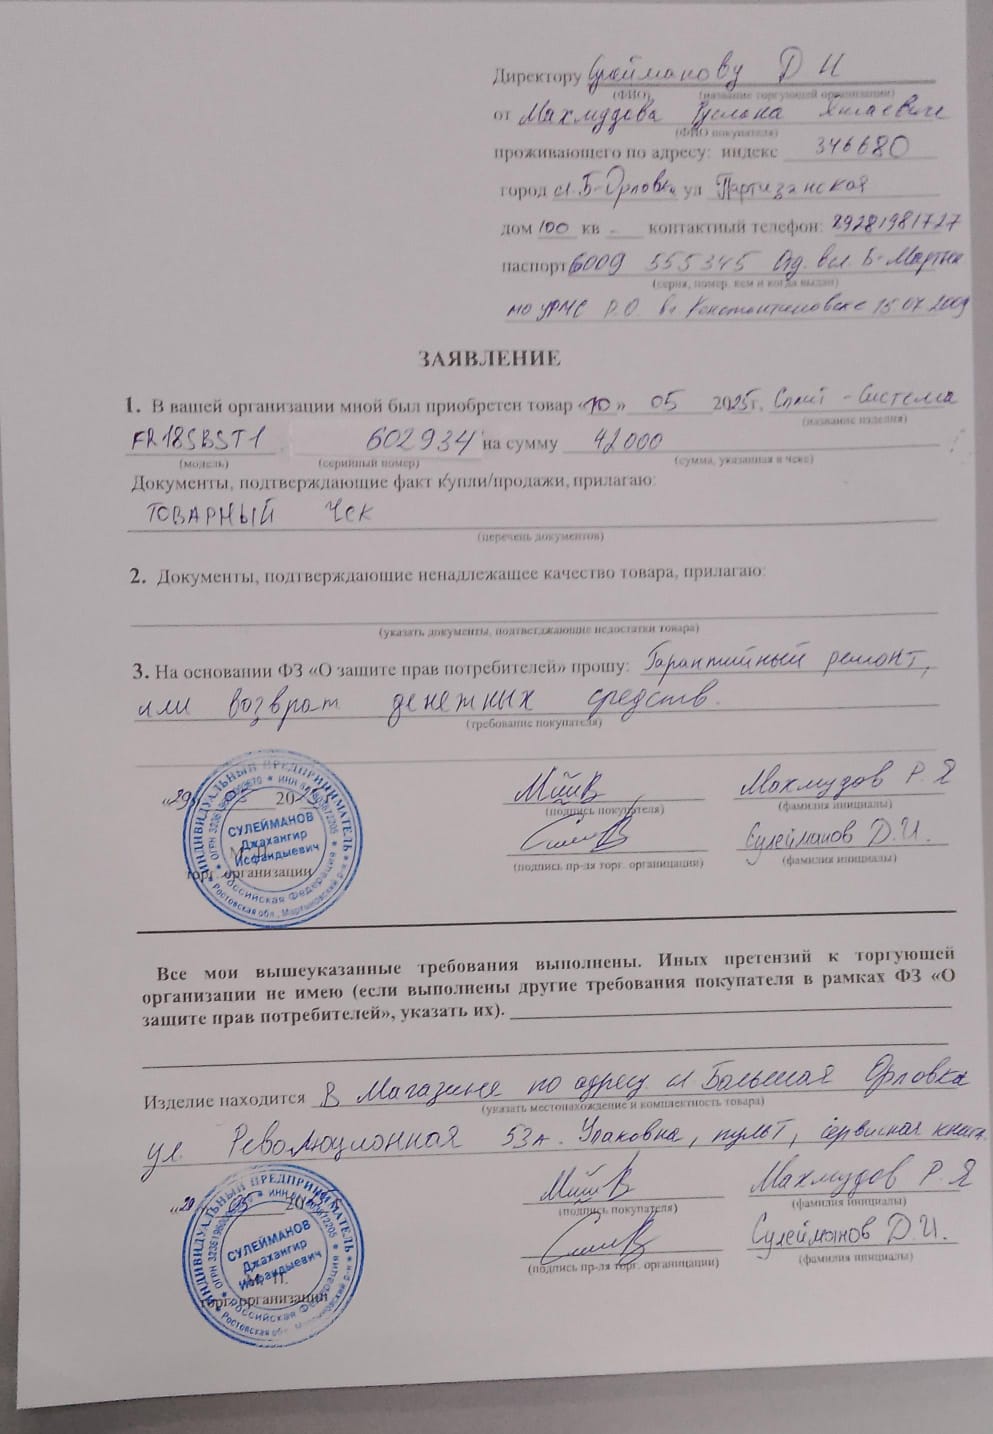 Директору Сулейманову Д И
(ФИО) (название торгующей организации)
от Махмудова Руслана Яшаевича
(ФИО покупателя)
проживающего по адресу: индекс 346680
город сл. Б-Орловка ул Партизанская
дом 100 кв - контактный телефон: 89281981727
паспорт 6009 555345 Отд. в сл. Б-Мартын
(серия, номер, кем и когда выдан)
МО УФМС Р.О. в г. Константиновске 15 07 2009
ЗАЯВЛЕНИЕ
1. В вашей организации мной был приобретен товар «10» 05 2025г, Сплит-Система
(название изделия)
FR18SBST1 602934 на сумму 42000
(модель) (серийный номер) (сумма, указанная в чеке)
Документы, подтверждающие факт купли/продажи, прилагаю:
ТОВАРНЫЙ ЧЕК
(перечень документов)
2. Документы, подтверждающие ненадлежащее качество товара, прилагаю:
(указать документы, подтвегджающие недостатки товара)
3. На основании ФЗ «О защите прав потребителей» прошу: Гарантийный ремонт,
или возврат денежных средств.
(требование покупателя)
«29» 20 Махмудов Р. Я
(подпись покупателя) (фамилия инициалы)
Сулейманов Д.И.
М.П.
торг. организации (подпись пр-ля торг. органицации) (фамилия инициалы)
ИНДИВИДУАЛЬНЫЙ ПРЕДПРИНИМАТЕЛЬ
СУЛЕЙМАНОВ
Джахангир
Исфандыевич
Российская Федерация
Ростовская обл., Мартыновский р-н
Все мои вышеуказанные требования выполнены. Иных претензий к торгующей
организации не имею (если выполнены другие требования покупателя в рамках ФЗ «О
защите прав потребителей», указать их).
Изделие находится В Магазине по адресу сл. Большая Орловка
(указать местонахождение и комплектность товара)
ул. Революционная 53а. Упаковка, пульт, сервисная книга.
20 Махмудов Р. Я
(подпись покупателя) (фамилия инициалы)
Сулейманов Д.И.
М. П.
торг. организации (подпись пр-ля торг. органицации) (фамилия инициалы)
ИНДИВИДУАЛЬНЫЙ ПРЕДПРИНИМАТЕЛЬ
СУЛЕЙМАНОВ
Джахангир
Исфандыевич
Российская Федерация